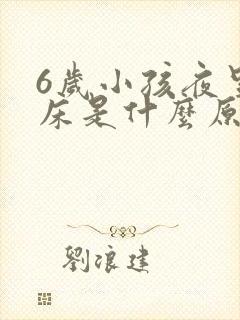 6歲小孩夜
床是什麼原
劉浪建